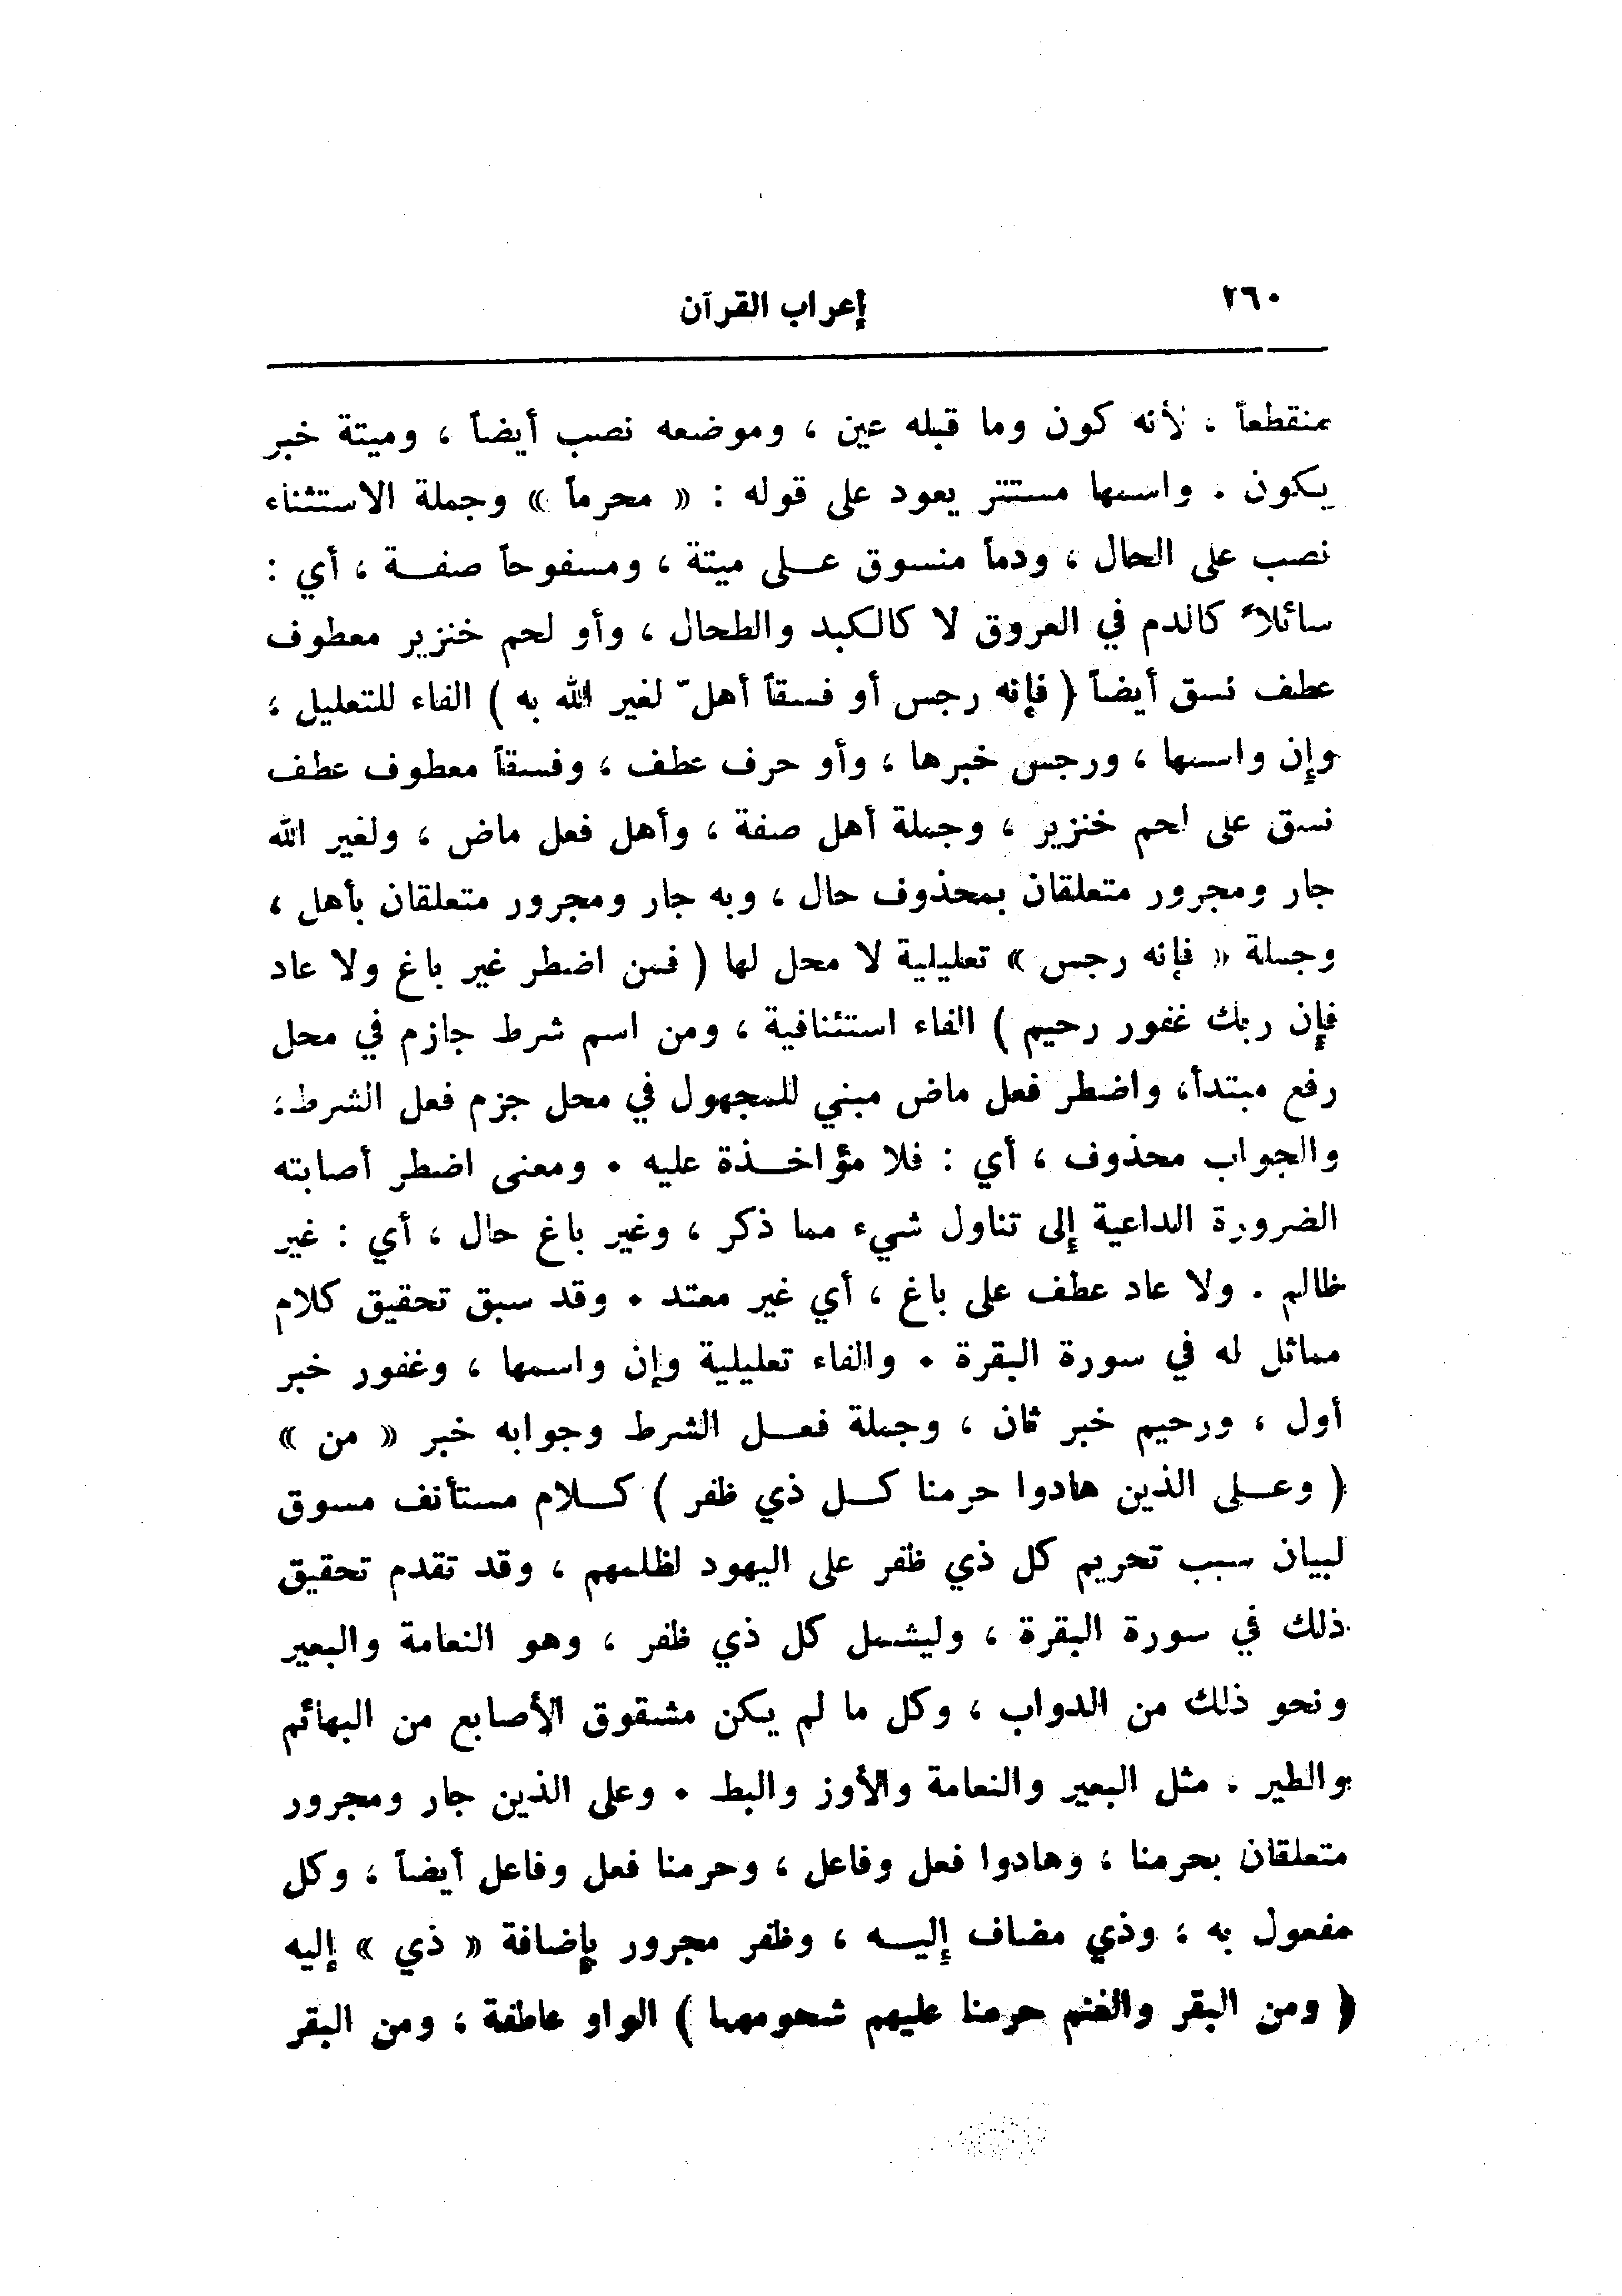 ٢٦٠
إعراب القرآن
منقطعاً ، لأنه كون وما قبله عين ، وموضعه نصب أيضاً ، وميتة خبر
يكون . واسمها مستتر يعود على قوله : « محرماً » وجملة الاستثناء
نصب على الحال ، ودماً منسوق عـلى ميتة ، ومسفوحاً صفـة ، أي :
سائلاً كالدم في العروق لا كالكبد والطحال ، وأو لحم خنزير معطوف
عطف نسق أيضاً ( فإنه رجس أو فسقاً أهلّ لغير الله به ) الفاء للتعليل ،
وإن واسمها ، ورجس خبرها ، وأو حرف عطف ، وفسقاً معطوف عطف
نسق على لحم خنزير ، وجملة أهل صفة ، وأهل فعل ماض ، ولغير الله
جار ومجرور متعلقان بمحذوف حال ، وبه جار ومجرور متعلقان بأهل ،
وجملة « فإنه رجس » تعليلية لا محل لها ( فمن اضطر غير باغ ولا عاد
فإن ربك غفور رحيم ) الفاء استئنافية ، ومن اسم شرط جازم في محل
رفع مبتدأ، واضطر فعل ماض مبني للمجهول في محل جزم فعل الشرط،
والجواب محذوف ، أي : فلا مؤاخـذة عليه . ومعنى اضطر أصابته
الضرورة الداعية إلى تناول شيء مما ذكر ، وغير باغ حال ، أي : غير
ظالم . ولا عاد عطف على باغ ، أي غير معتد . وقد سبق تحقيق كلام
مماثل له في سورة البقرة . والفاء تعليلية وإن واسمها ، وغفور خبر
أول ، ورحيم خبر ثان ، وجملة فعـل الشرط وجوابه خبر « من »
( وعـلى الذين هادوا حرمنا كـل ذي ظفر ) كـلام مستأنف مسوق
لبيان سبب تحريم كل ذي ظفر على اليهود لظلمهم ، وقد تقدم تحقيق
ذلك في سورة البقرة ، وليشمل كل ذي ظفر ، وهو النعامة والبعير
ونحو ذلك من الدواب ، وكل ما لم يكن مشقوق الأصابع من البهائم
والطير ، مثل البعير والنعامة والأوز والبط . وعلى الذين جار ومجرور
متعلقان بحرمنا ، وهادوا فعل وفاعل ، وحرمنا فعل وفاعل أيضاً ، وكل
مفعول به ، وذي مضاف إليـه ، وظفر مجرور بإضافة « ذي » إليه
( ومن البقر والغنم حرمنا عليهم شحومهما ) الواو عاطفة ، ومن البقر